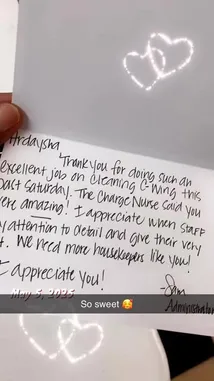 Ardaysha
Thank you for doing such an
excellent job on cleaning C-Wing this
past Saturday. The Charge Nurse said you
were amazing! I appreciate when staff
pay attention to detail and give their very
We need more housekeepers like you!
I appreciate you!
Administrator
May 5, 2025
So sweet 🥰